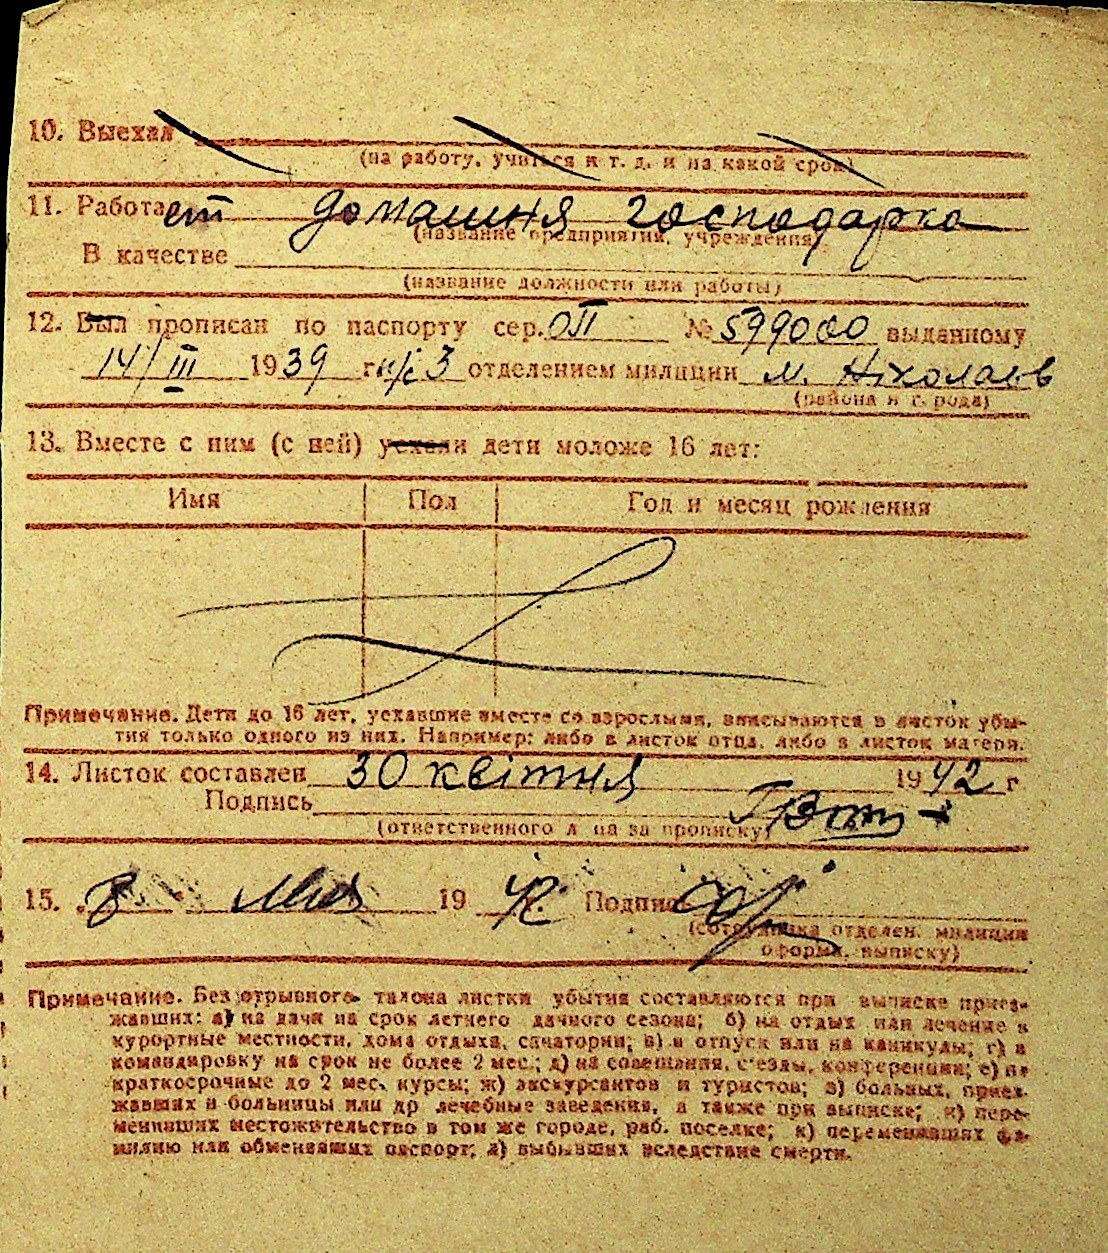 10. Выехал
(на работу, учиться и т. д. и на какой срок)
11. Работает домашня господарка
(название предприятия, учреждения)
В качестве
(название должности или работы)
12. Был прописан по паспорту сер. ОП № 599000 выданному
14/III 1939 г. н/с 3 отделением милиции м. Ніколаєв
(района и города)
13. Вместе с ним (с ней) уехали дети моложе 16 лет:
Имя Пол Год и месяц рождения
Примечание. Дети до 16 лет, уехавшие вместе со взрослыми, вписываются в листок убы-
тия только одного из них. Например: либо в листок отца, либо в листок матери.
14. Листок составлен 30 квітня 1942 г
Подпись
(ответственного лица за прописку)
15. 8 мая 1942 Подпись
(сотрудника отделен. милиции
оформ. выписку)
Примечание. Без отрывного талона листки убытия составляются при выписке приез-
жавших: а) на дачи на срок летнего дачного сезона; б) на отдых или лечение в
курортные местности, дома отдыха, санатории; в) в отпуск или на каникулы; г) в
командировку на срок не более 2 мес.; д) на совещания, съезды, конференции; е) на
краткосрочные до 2 мес. курсы; ж) экскурсантов и туристов; з) больных, приез-
жавших в больницы или др лечебные заведения, а также при выписке; и) пере-
менивших местожительство в том же городе, раб. поселке; к) переменивших фа-
милию или обменявших паспорт; л) выбывших вследствие смерти.